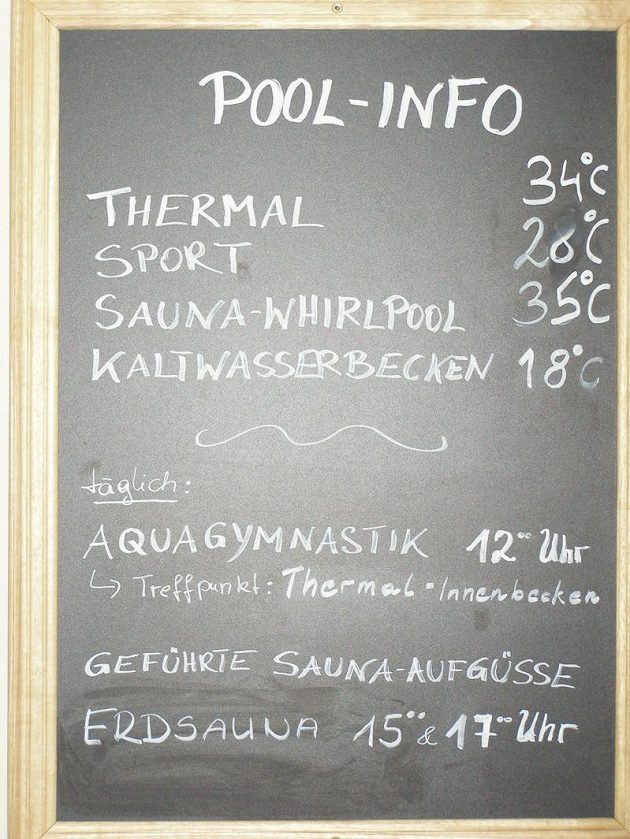 POOL-INFO
THERMAL 34°C
SPORT 28°C
SAUNA-WHIRLPOOL 35°C
KALTWASSERBECKEN 18°C
täglich:
AQUAGYMNASTIK 12⁰⁰ Uhr
↳ Treffpunkt: Thermal-Innenbecken
GEFÜHRTE SAUNA-AUFGÜSSE
ERDSAUNA 15⁰⁰ & 17⁰⁰ Uhr